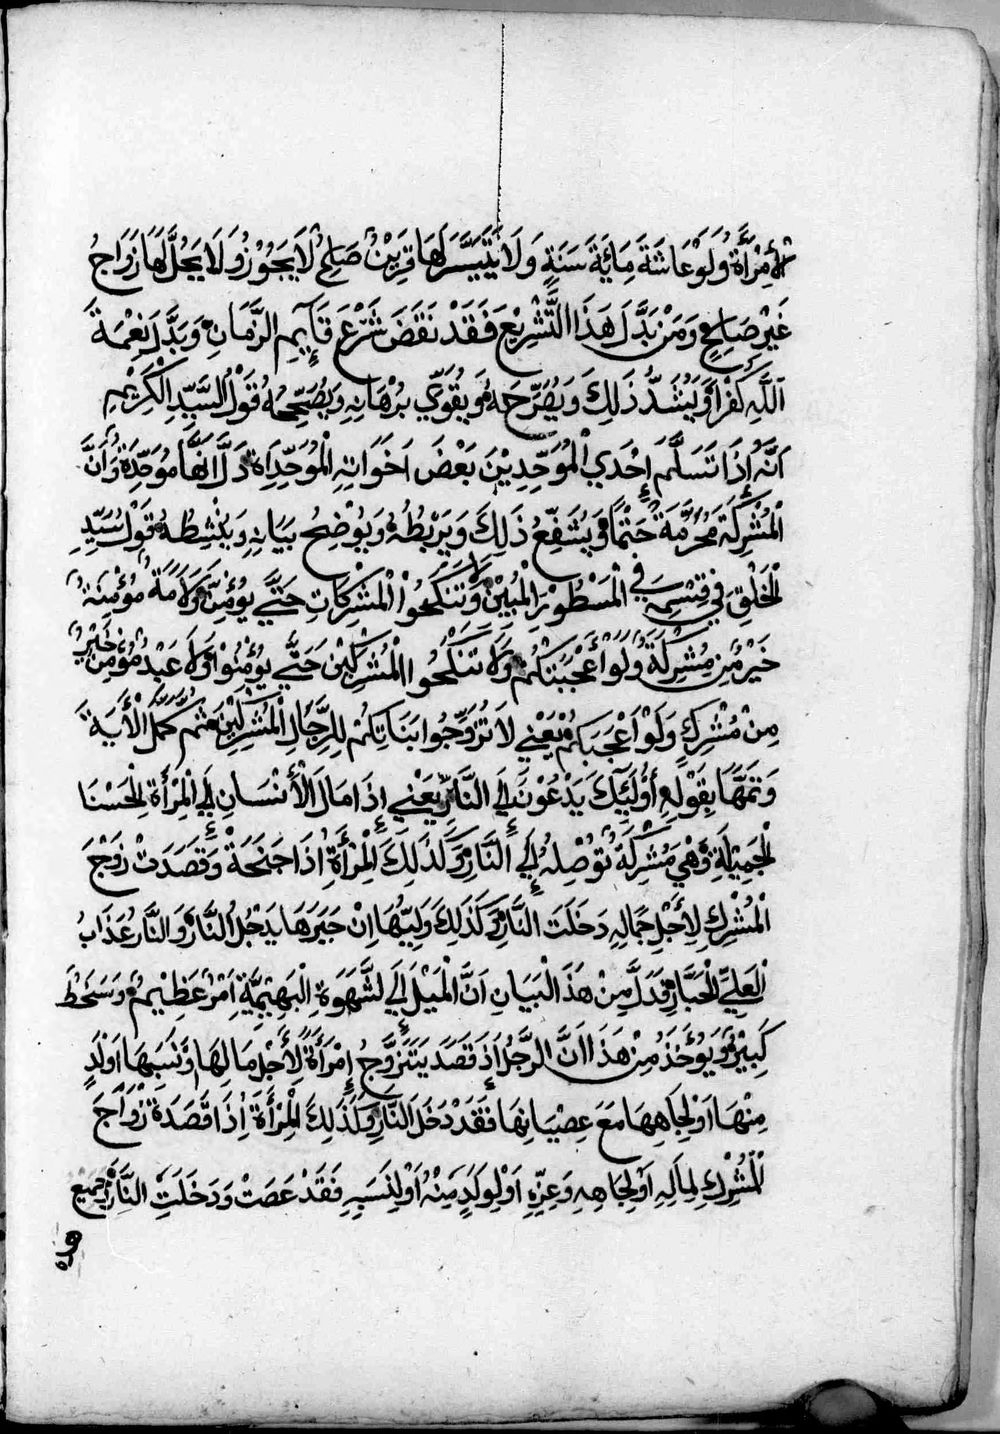 لأمرأة ولو عاشة مائية سنة ولا يتيسر لها قرين صالح لا يجوز ولا يحل لها زواج
غير صالح ومن بدل هذا التشريع فقد نقض شرع قآيم الزمان وبدل نعمة
الله كفرا ويشد ذلك ويصرحه ويقوي برهانه ويصححه قول السيد الكريم
انه إذا تسلم إحدي الموحدين بعض اخواته الموحداة دل انها موحدة وأن
المشركة محرمة حتما ويشفع ذلك ويربطه ويوضح بيانه وينشطه قول سيد
الخلق في قسمه في المسطور المبين ولا تنكحوا المشركات حتي يؤمن ولامة مؤمنة
خير من مشركة ولو أعجبتكم ولا تنكحوا المشركين حتي يؤمنوا ولا عبد مؤمن خير
من مشرك ولو اعجبكم يعني لا تزوجوا بناتكم للرجال المشركين ثم كمل الأية
وتمها بقوله أوليك يدعون إلي النار يعني إذا مال الأنسان إلي المرأة الحسنا
الجميلة وهي مشركة توصله إلي النار وكذلك المرأة اذا جنحة وقصدت زوج
المشرك لأجل جماله دخلت النار وكذلك وليها ان جبرها يدخل النار والنار عذاب
العلي الجبار فدل من هذ البيان ان الميل إلي لشهوة البهيمية امر عظيم وسخط
كبير ويؤخذ من هذا ان الرجل إذ قصد يتزوج إمرأة لأجل مالها ونسبها اولد
منها اولجاهها مع عصيانها فقد دخل النار وكذلك المرأة إذا قصدة زواج
المشرك لماله اولجاهه وعزه اولولد منه اولنسبه فقد عصت ودخلت النار جميع
هذه